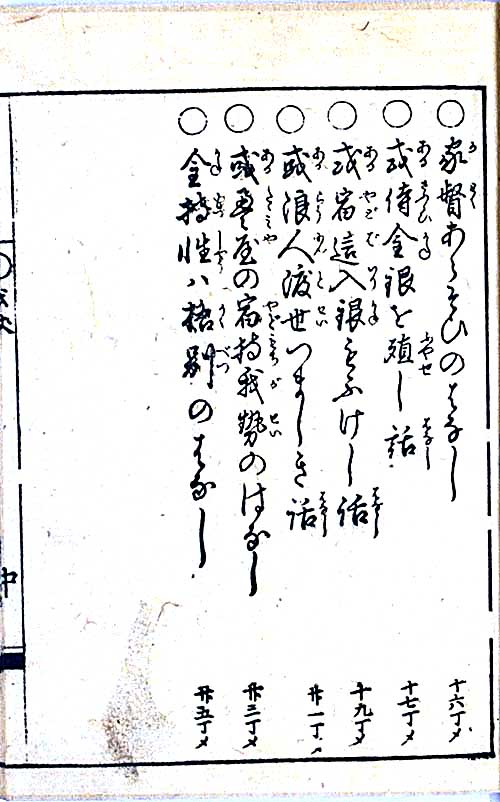 ○家督あらそひのはなし 十六丁メ
○或侍金銀を殖し話 十七丁メ
○或宿這入銀をふけし話 十九丁メ
○或浪人渡世つましき話 廿一丁メ
○或畳屋の宿持我勢のはなし 廿三丁メ
○金持性ハ格別のはなし 廿五丁メ
中